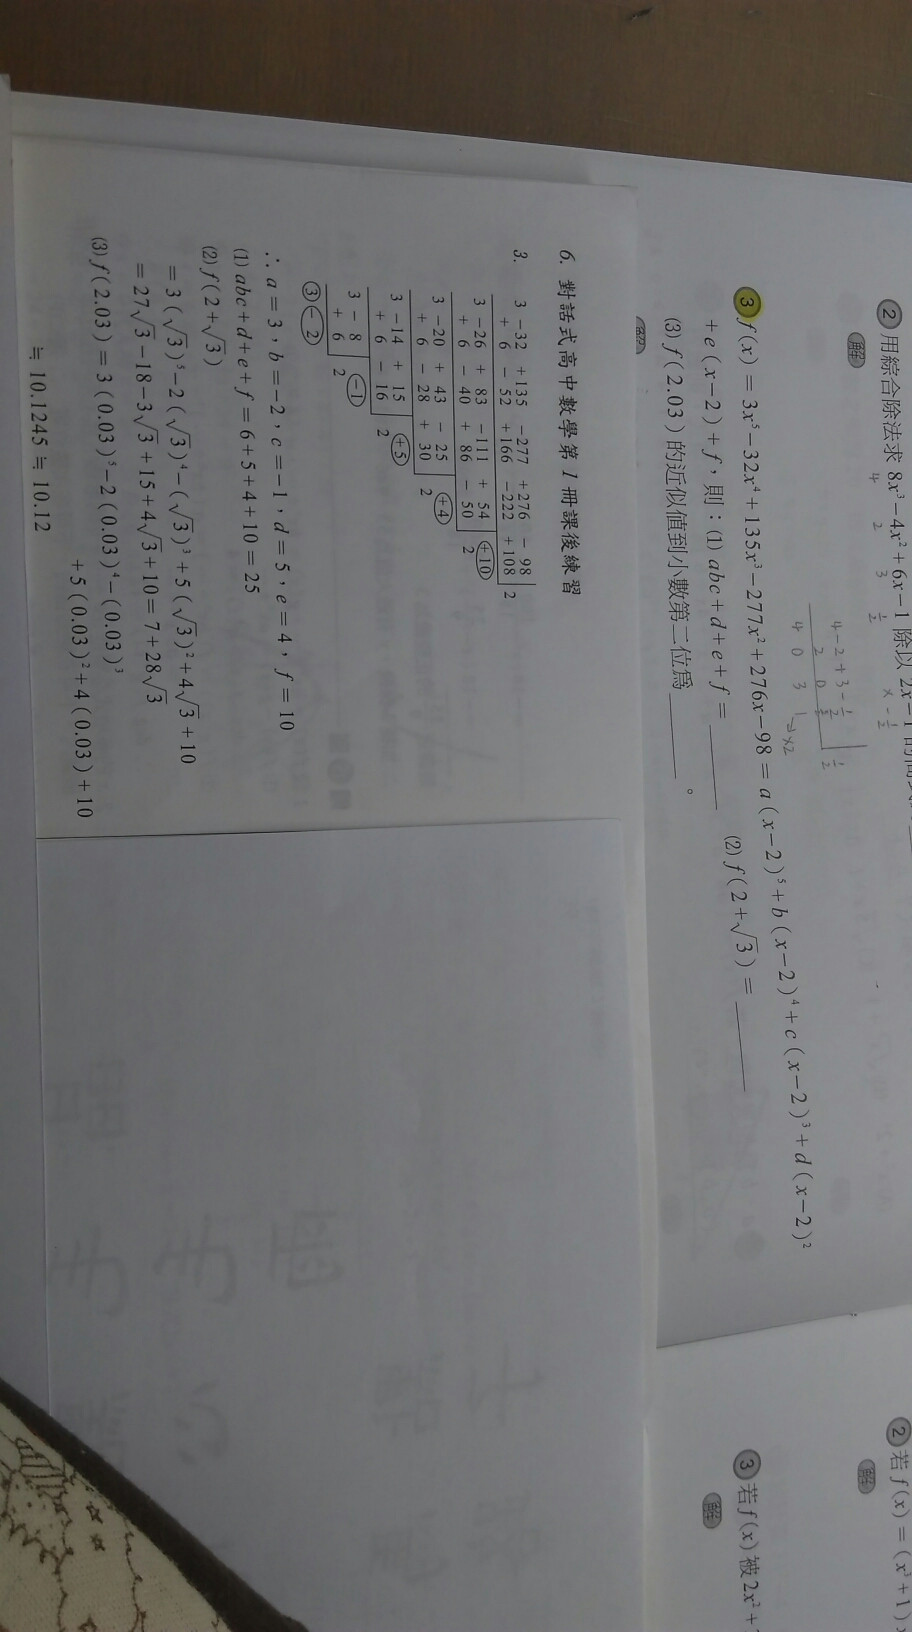 ② 用綜合除法求 8x³−4x²+6x−1 除以 2x−1
4 2 3 1/2 x−1/2
解
4−2+3−1/2 | 1/2
2 0
4 0 3 1→×2
③ f(x)=3x⁵−32x⁴+135x³−277x²+276x−98=a(x−2)⁵+b(x−2)⁴+c(x−2)³+d(x−2)²
+e(x−2)+f,則:(1) abc+d+e+f=______ (2) f(2+√3)=______
(3) f(2.03)的近似值到小數第二位為______。
解
6. 對話式高中數學第1冊課後練習
3. 3 −32 +135 −277 +276 − 98 | 2
+ 6 − 52 +166 −222 +108
3 −26 + 83 −111 + 54 +10 | 2
+ 6 − 40 + 86 − 50
3 −20 + 43 − 25 +4 | 2
+ 6 − 28 + 30
3 −14 + 15 +5 | 2
+ 6 − 16
3 − 8 −1 | 2
+ 6
③ −2
∴ a=3,b=−2,c=−1,d=5,e=4,f=10
(1) abc+d+e+f=6+5+4+10=25
(2) f(2+√3)
=3(√3)⁵−2(√3)⁴−(√3)³+5(√3)²+4√3+10
=27√3−18−3√3+15+4√3+10=7+28√3
(3) f(2.03)=3(0.03)⁵−2(0.03)⁴−(0.03)³
+5(0.03)²+4(0.03)+10
≒10.1245≒10.12
② 若f(x)=(x³+1)
解
③ 若f(x)被2x²+
解